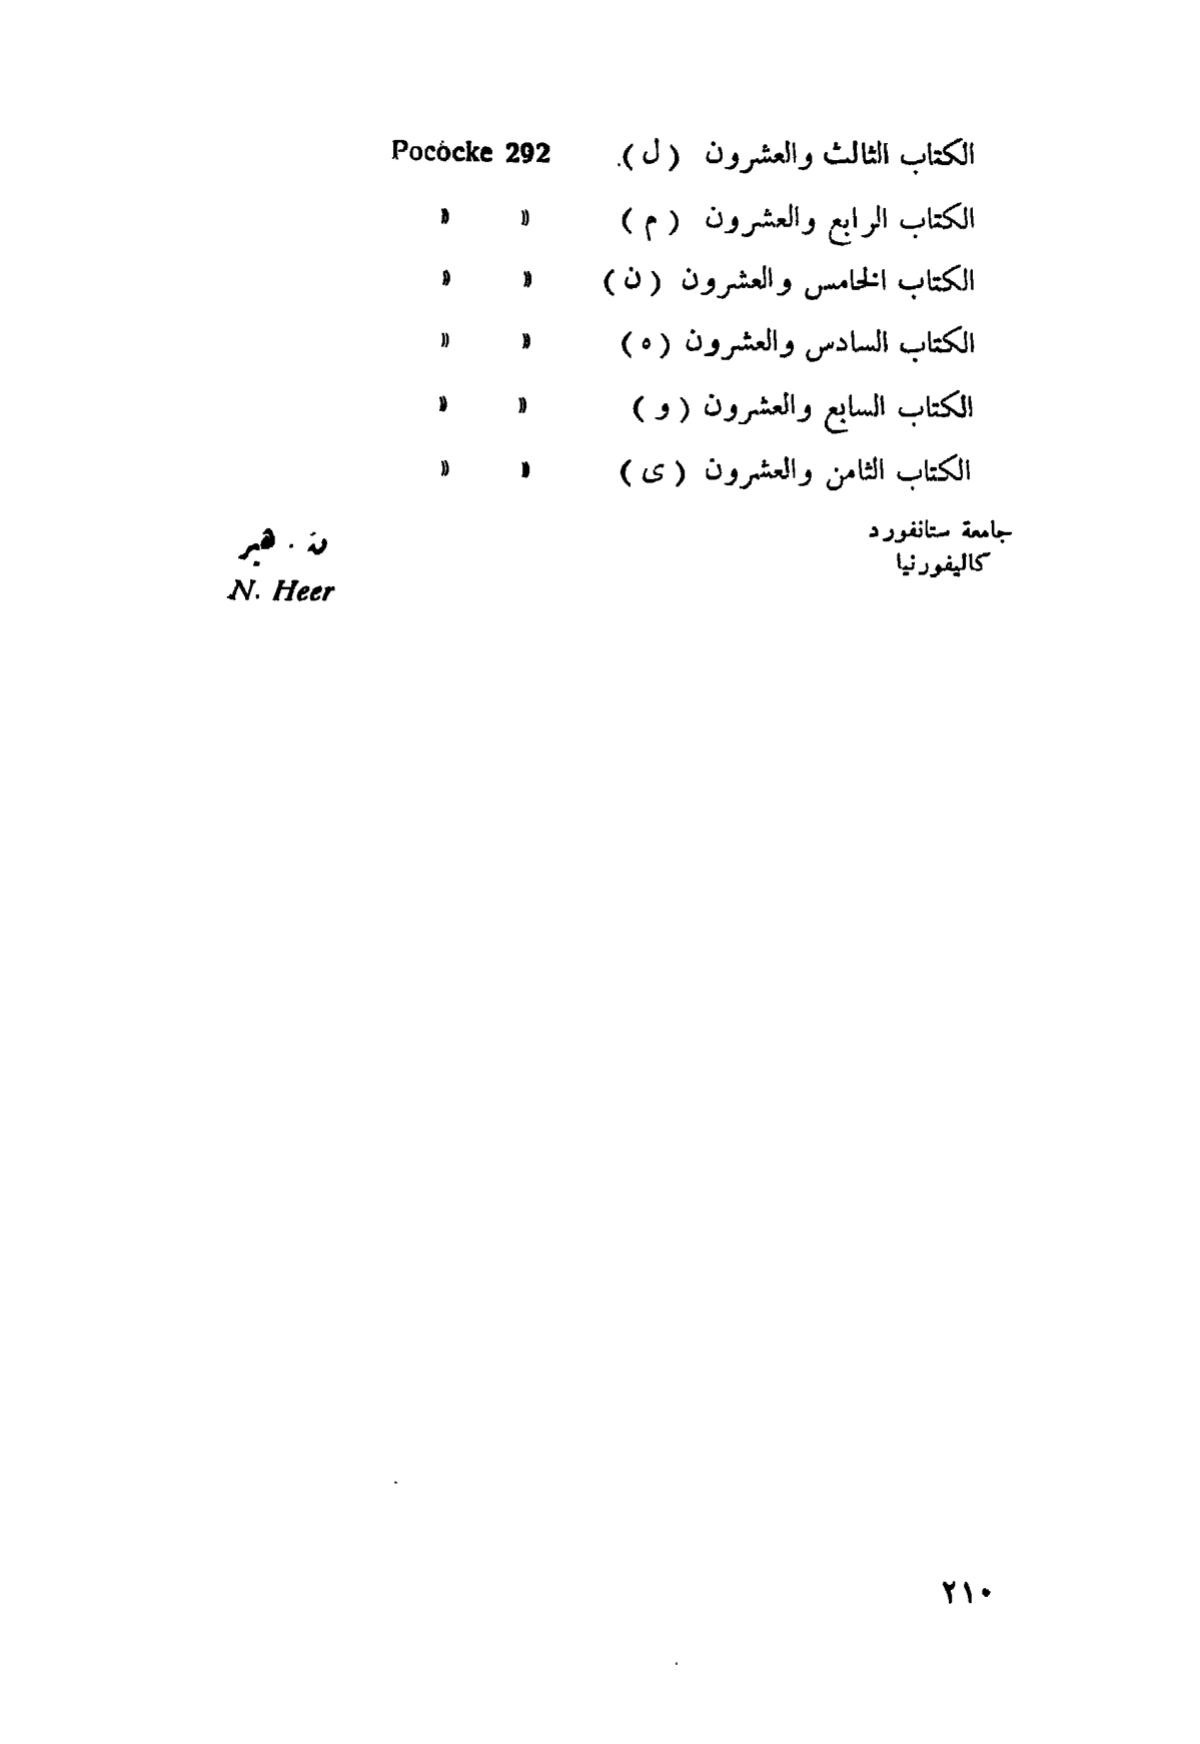 الكتاب الثالث والعشرون (ل). Pococke 292
الكتاب الرابع والعشرون (م) » »
الكتاب الخامس والعشرون (ن) » »
الكتاب السادس والعشرون (ه) » »
الكتاب السابع والعشرون (و) » »
الكتاب الثامن والعشرون (ى) » »
جامعة ستانفورد
كاليفورنيا
ن . هير
N. Heer
٢١٠